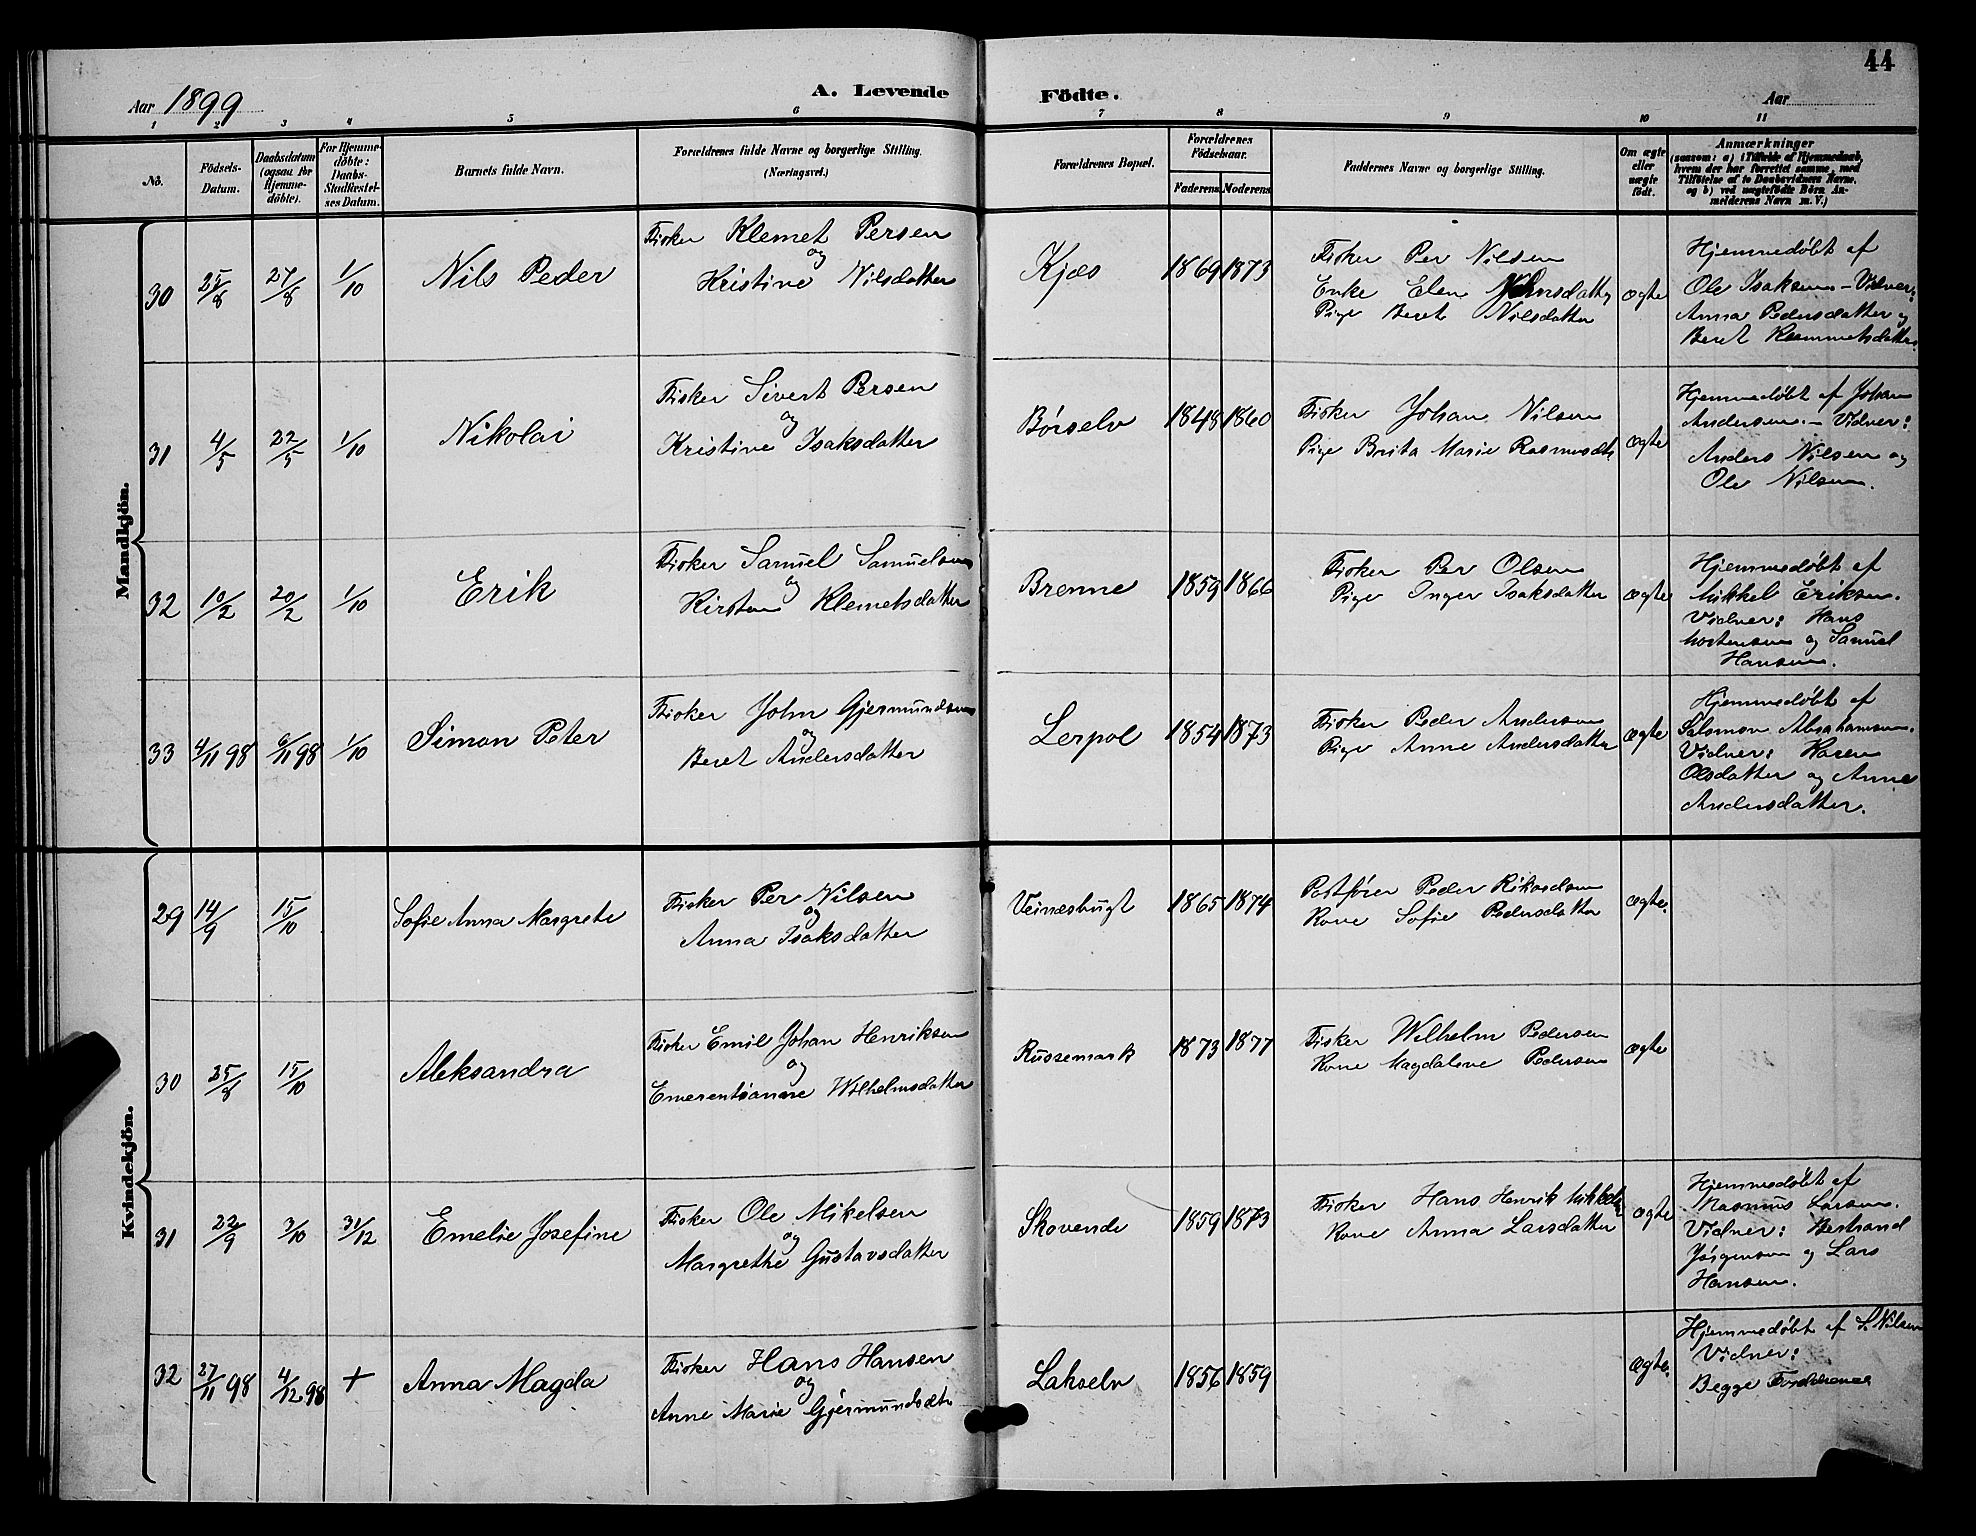 44
Aar 1899
A. Levende Födte.
Aar
1 2 3 4 5 6 7 8 9 10 11
No.
Födsels-Datum.
Daabsdatum (ogsaa for Hjemmedöbte).
For Hjemmedöbte: Daabs-Stadfæstelses Datum.
Barnets fulde Navn.
Forældrenes fulde Navne og borgerlige Stilling. (Næringsvei.)
Forældrenes Bopæl.
Forældrenes Födselsaar.
Faderens. Moderens.
Faddernes Navne og borgerlige Stilling.
Om ægte eller uægte födt.
Anmærkninger
(saasom: a) i Tilfælde af Hjemmedaab, hvem der har forrettet samme, med Tilföielse af to Daabsvidners Navne, og b) ved uægtefödte Börn Anmelderens Navn m. V.)
Mandkjön.
30 25/8 27/8 1/10 Nils Peder
Fisker Klemet Persen
og
Kristine Nilsdatter
Kjæs 1869 1873
Fisker Per Nilsen
Enke Elen
Pige Beret Nilsdatter
ægte
Hjemmedøbt af
Ole Isaksen – Vidner:
Anna Pedersdatter og
Beret Klemmetsdatter.
31 4/5 22/5 1/10 Nikolai
Fisker Sivert Persen
og
Kristine Isaksdatter
Børselv 1848 1860
Fisker Johan Nilsen
Pige Brita Marie Rasmusdt.
ægte
Hjemmedøbt af Johan
Andersen. – Vidner:
Anders Nilsen og
Ole Nilsen.
32 10/2 20/2 1/10 Erik
Fisker Samuel Samuelsen
og
Kirsten Klemetsdatter
Brenne 1859 1866
Fisker Per Olsen
Pige Inger Isaksdatter
ægte
Hjemmedøbt af
Mikkel Eriksen.
Vidner: Hans
Mortensen og Samuel
Hansen.
33 4/11 98 6/11 98 1/10 Simon Peter
Fisker John Gjermundsen
og
Beret Andersdatter
Lerpol 1854 1873
Fisker Peder Andersen
Pige Anne Andersdatter
ægte
Hjemmedøbt af
Salomon Abrahamsen.
Vidner: Karen
Olsdatter og Anne
Andersdatter.
Kvindekjön.
29 14/9 15/10 Sofie Anna Margrete
Fisker Per Nilsen
og
Anna Isaksdatter
Veinesbugt 1865 1874
Postfører Peder Rikardsen
Kone Sofie Pedersdatter
ægte.
30 25/8 15/10 Aleksandra
Fisker Emil Johan Henriksen
og
Emerentsanne Wilhelmsdatter
Russemark 1873 1877
Fisker Wilhelm Pedersen
Kone Magdalene Pedersen
ægte
31 22/9 3/10 31/12 Emelie Josefine
Fisker Ole Mikelsen
og
Margrethe Gustavsdatter
Skovende 1859 1873
Fisker Hans Henrik
Kone Anna Larsdatter
ægte
Hjemmedøbt af
Rasmus Larsen.
Vidner: Bertrand
Jørgensen og Lars
Hansen.
32 27/11 98 4/12 98 + Anna Magda
Fisker Hans Hansen
og
Anne Marie Gjermundsdt.
Lakselv 1856 1859
ægte.
Hjemmedøbt af S. Nilsen
Vidner:
Begge Forældrene